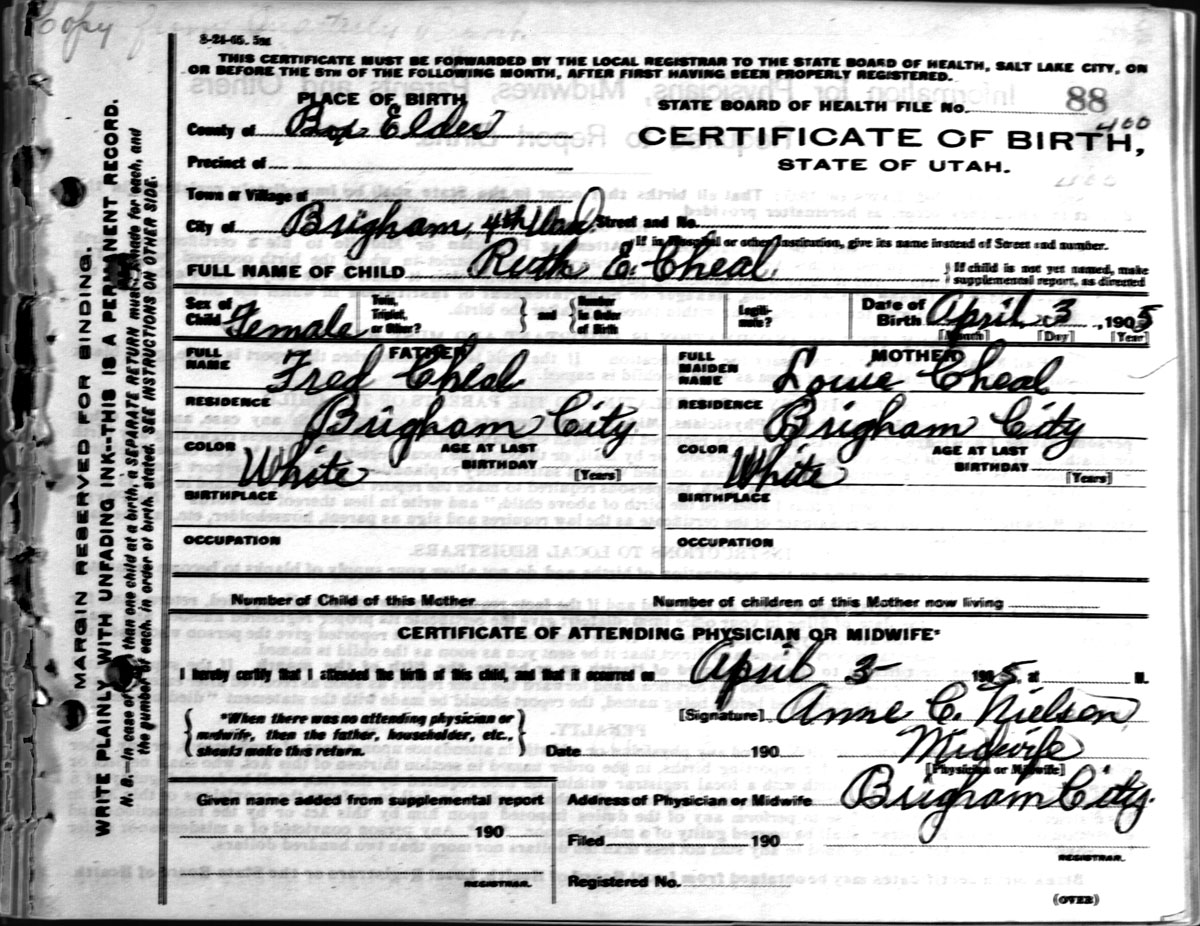 Copy from
8-24-05. 5M
THIS CERTIFICATE MUST BE FORWARDED BY THE LOCAL REGISTRAR TO THE STATE BOARD OF HEALTH, SALT LAKE CITY, ON
OR BEFORE THE 5TH OF THE FOLLOWING MONTH, AFTER FIRST HAVING BEEN PROPERLY REGISTERED.
PLACE OF BIRTH
STATE BOARD OF HEALTH FILE No. 88
400
County of Box Elder
CERTIFICATE OF BIRTH,
STATE OF UTAH.
400
Precinct of
Town or Village of
City of Brigham 4th Ward Street and No.
If in Hospital or other Institution, give its name instead of Street and number.
FULL NAME OF CHILD Ruth E. Cheal
If child is not yet named, make
supplemental report, as directed
Sex of Child Female
Twin, Triplet, or Other?
and
Number in Order of Birth
Legiti-mate?
Date of Birth April 3, 1905
[Month] [Day] [Year]
FATHER
FULL NAME Fred Cheal
MOTHER
FULL MAIDEN NAME Louie Cheal
RESIDENCE Brigham City
RESIDENCE Brigham City
COLOR White AGE AT LAST BIRTHDAY [Years]
COLOR White AGE AT LAST BIRTHDAY [Years]
BIRTHPLACE
BIRTHPLACE
OCCUPATION
OCCUPATION
Number of Child of this Mother
Number of children of this Mother now living
CERTIFICATE OF ATTENDING PHYSICIAN OR MIDWIFE*
I hereby certify that I attended the birth of this child, and that it occurred on April 3 1905, at M.
*When there was no attending physician or
midwife, then the father, householder, etc.,
should make this return.
[Signature] Anne C. Nielson
Date 190
Midwife
[Physician or Midwife]
Given name added from supplemental report
190
REGISTRAR.
Address of Physician or Midwife Brigham City.
Filed 190
REGISTRAR.
Registered No.
(OVER)
MARGIN RESERVED FOR BINDING.
WRITE PLAINLY WITH UNFADING INK--THIS IS A PERMANENT RECORD.
N. B.—In case of more than one child at a birth, a SEPARATE RETURN must be made for each, and
the number of each, in order of birth, stated. SEE INSTRUCTIONS ON OTHER SIDE.